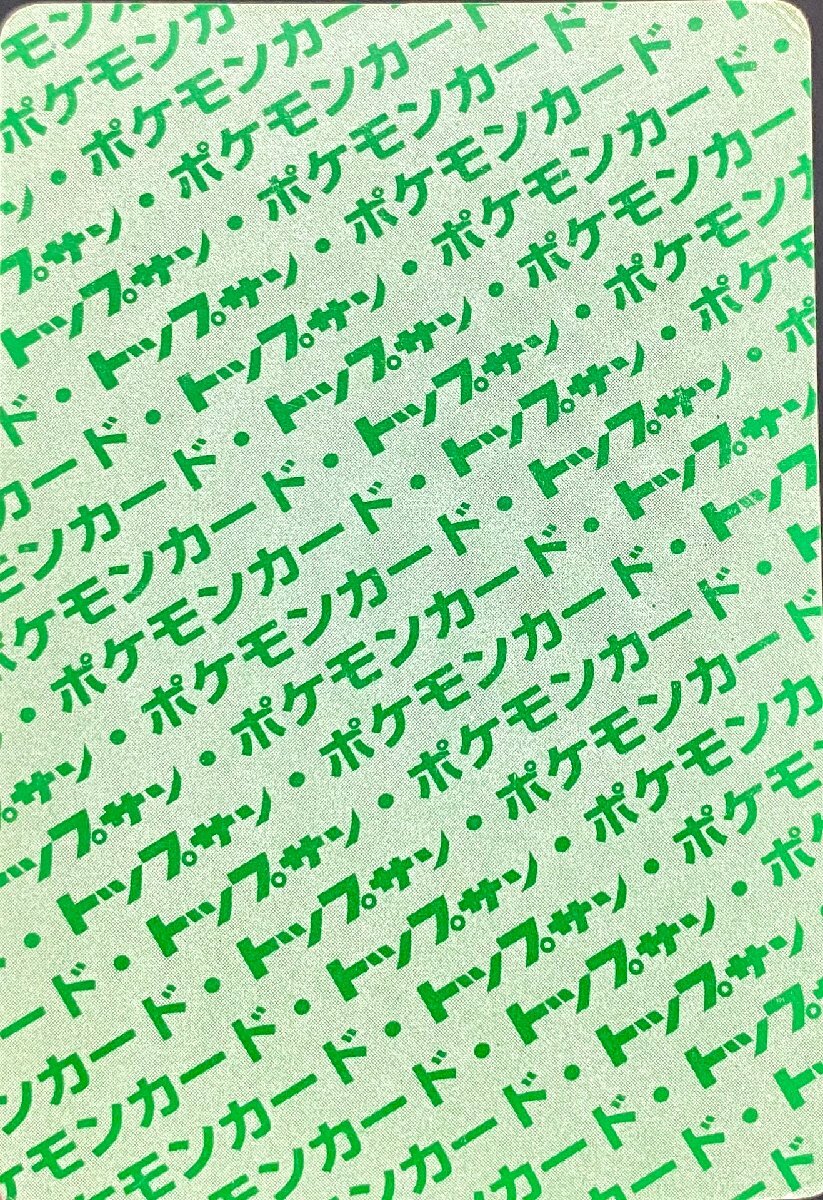 モンカ
ポケモンカ
ン・ポケモンカー
プサン・ポケモンカード
トップサン・ポケモンカード・
ド・トップサン・ポケモンカード・
カード・トップサン・ポケモンカード・
モンカード・トップサン・ポケモンカー
ポケモンカード・トップサン・ポケモンカ
・ポケモンカード・トップサン・ポケモ
サン・ポケモンカード・トップサン・ポ
ップサン・ポケモンカード・トップサン
・トップサン・ポケモンカード・トップ
ード・トップサン・ポケモンカード・ト
ンカード・トップサン・ポケモンカード
ケモンカード・トップサン・ポケモンカ
ケモンカード・トップサン・ポケモン
モンカード・トップサン・ポ
ンカード・トップサン・
カード・トップ
ード・ト
ド